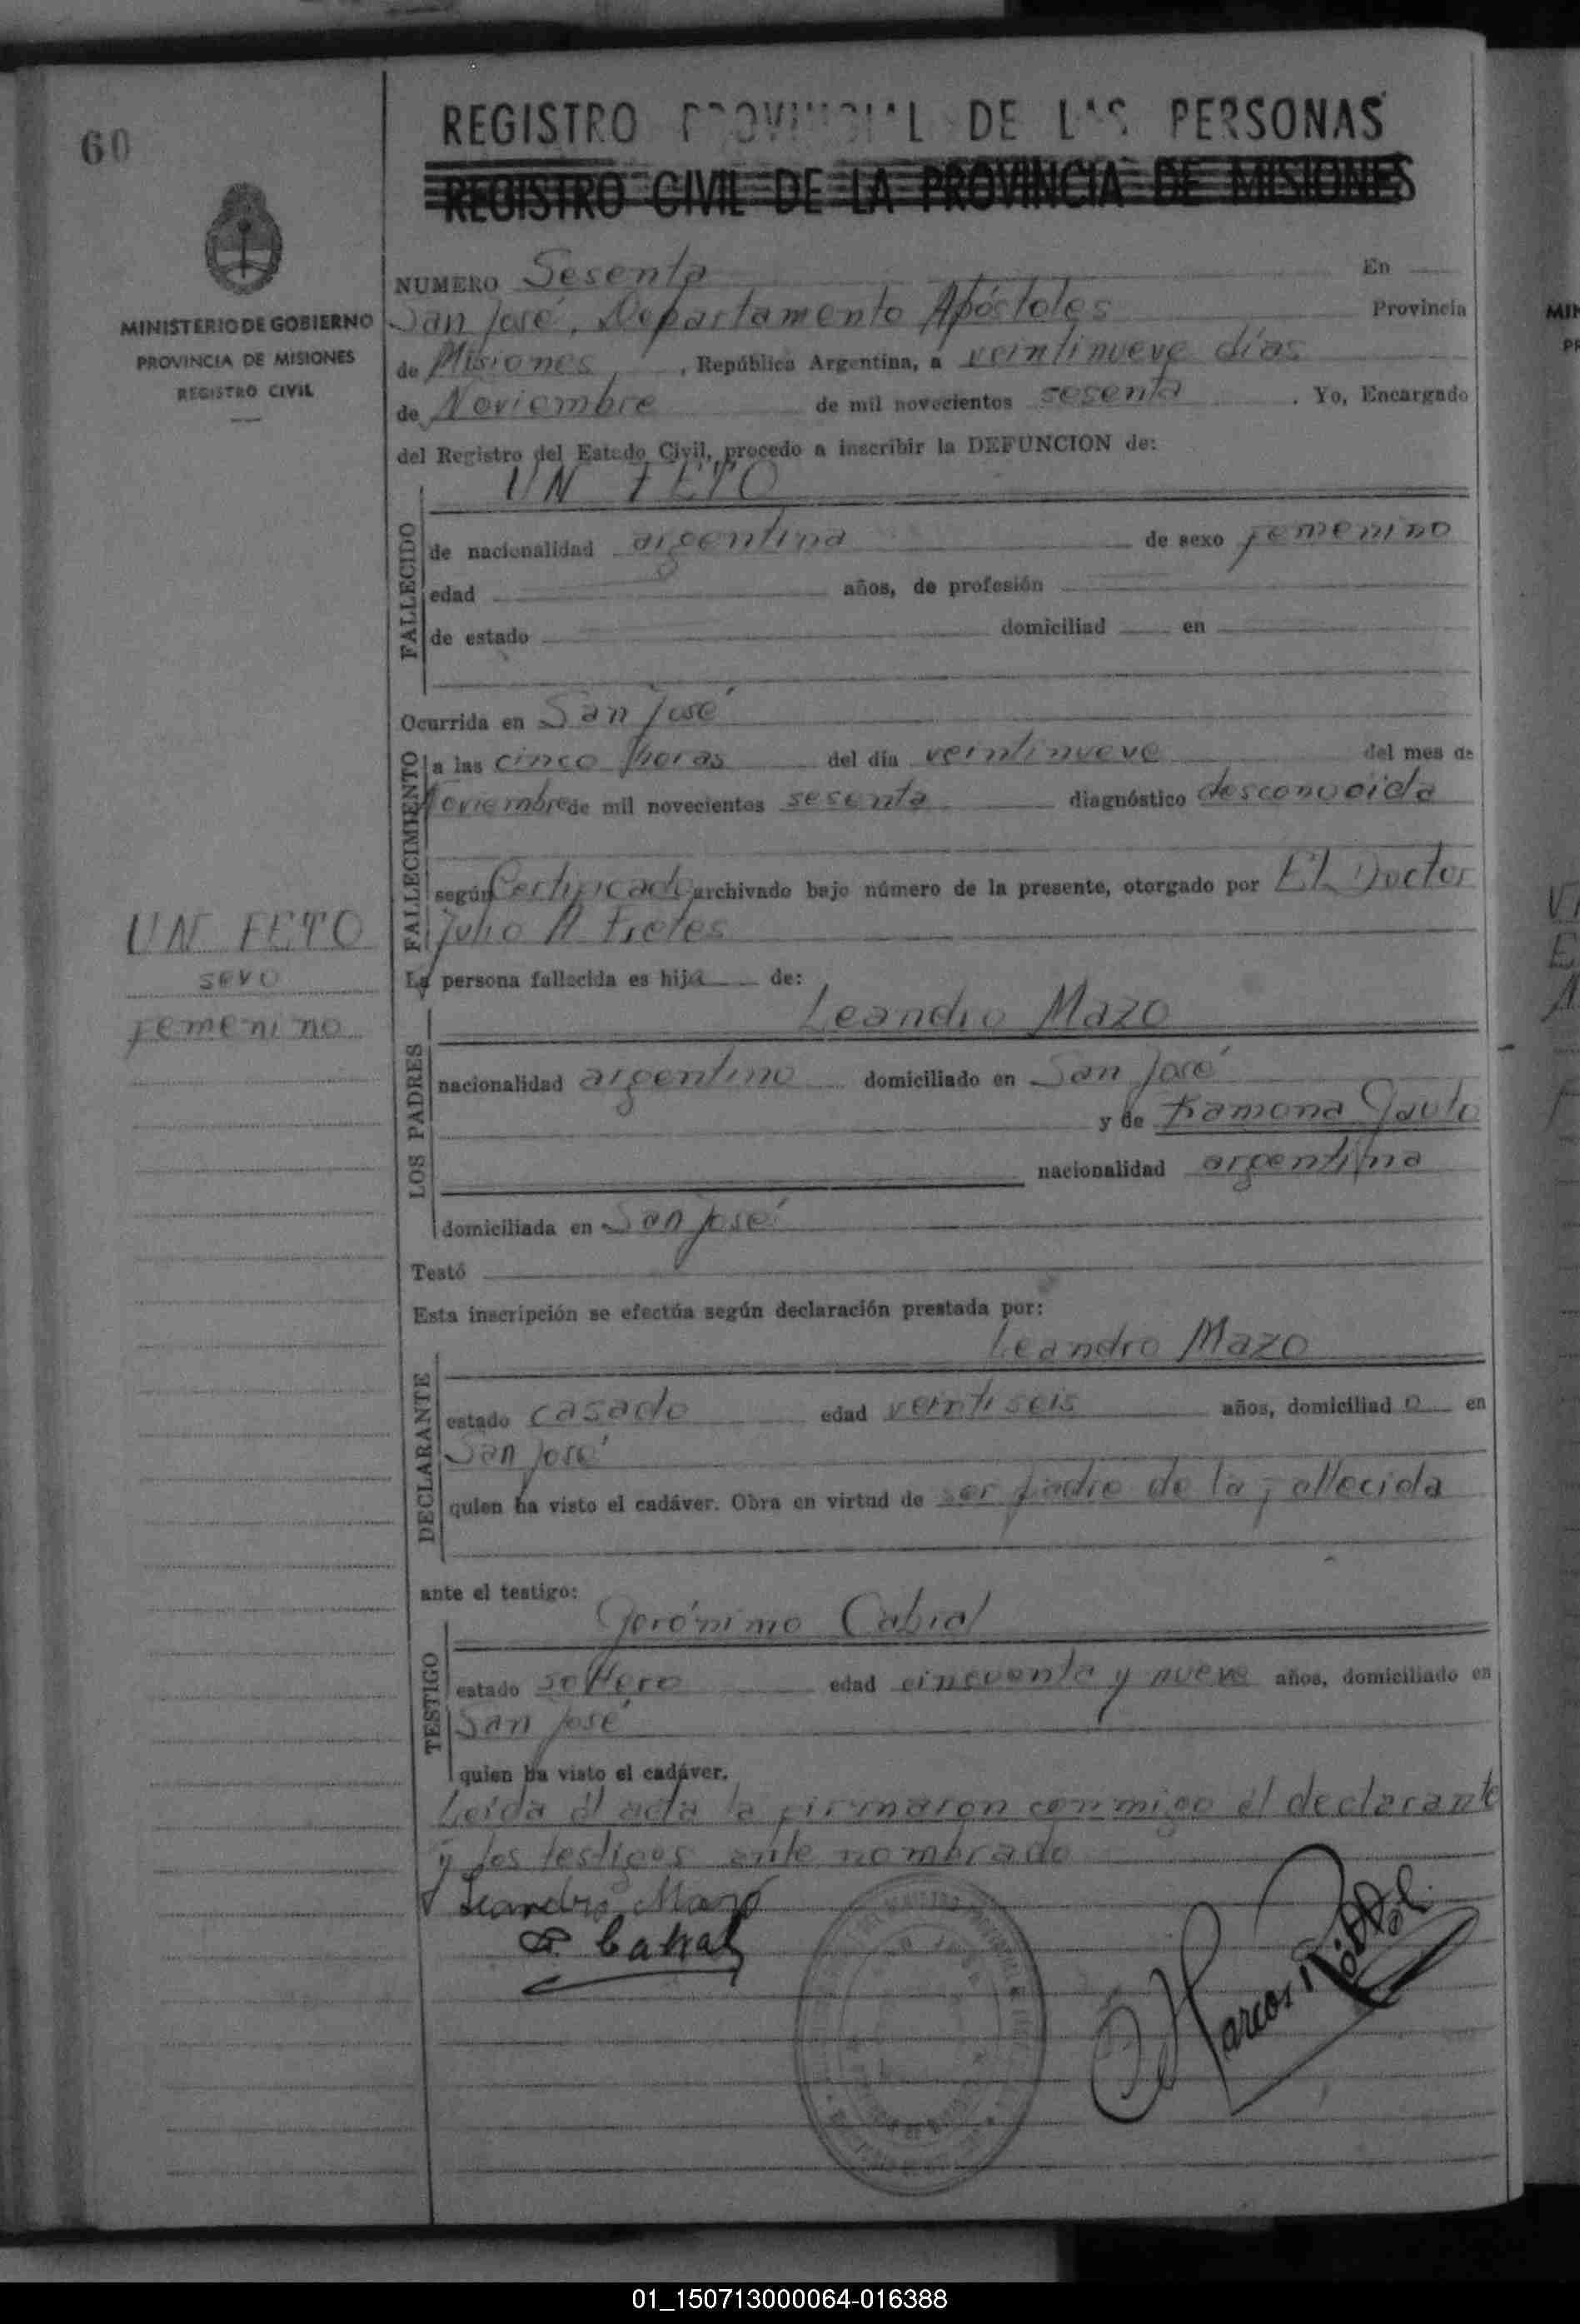 60
REGISTRO PROVINCIAL DE LAS PERSONAS
REGISTRO CIVIL DE LA PROVINCIA DE MISIONES
MINISTERIO DE GOBIERNO
PROVINCIA DE MISIONES
REGISTRO CIVIL
NUMERO Sesenta En
San José, Departamento Apóstoles Provincia
de Misiones, República Argentina, a veintinueve días
de Noviembre de mil novecientos sesenta. Yo, Encargado
del Registro del Estado Civil, procedo a inscribir la DEFUNCION de:
UN FETO
FALLECIDO
de nacionalidad argentina de sexo femenino
edad años, de profesión
de estado domiciliad en
Ocurrida en San José
FALLECIMIENTO
a las cinco horas del día veintinueve del mes de
Noviembre de mil novecientos sesenta diagnóstico desconocida
según Certificado archivado bajo número de la presente, otorgado por El Doctor
Julio A Fretes
UN FETO
sexo
femenino
La persona fallecida es hija de:
Leandro Mazo
LOS PADRES
nacionalidad argentino domiciliado en San José
y de Ramona Gauto
nacionalidad argentina
domiciliada en San José
Testó
Esta inscripción se efectúa según declaración prestada por:
Leandro Mazo
DECLARANTE
estado casado edad veintiseis años, domiciliad o en
San José
quien ha visto el cadáver. Obra en virtud de ser padre de la fallecida
ante el testigo:
Gerónimo Cabral
TESTIGO
estado soltero edad cincuenta y nueve años, domiciliado en
San José
quien ha visto el cadáver.
Leida él acta la firmaron conmigo él declarante
y los testigos ante nombrado
Leandro Mazo
G. Cabral
Marcos
01_150713000064-016388